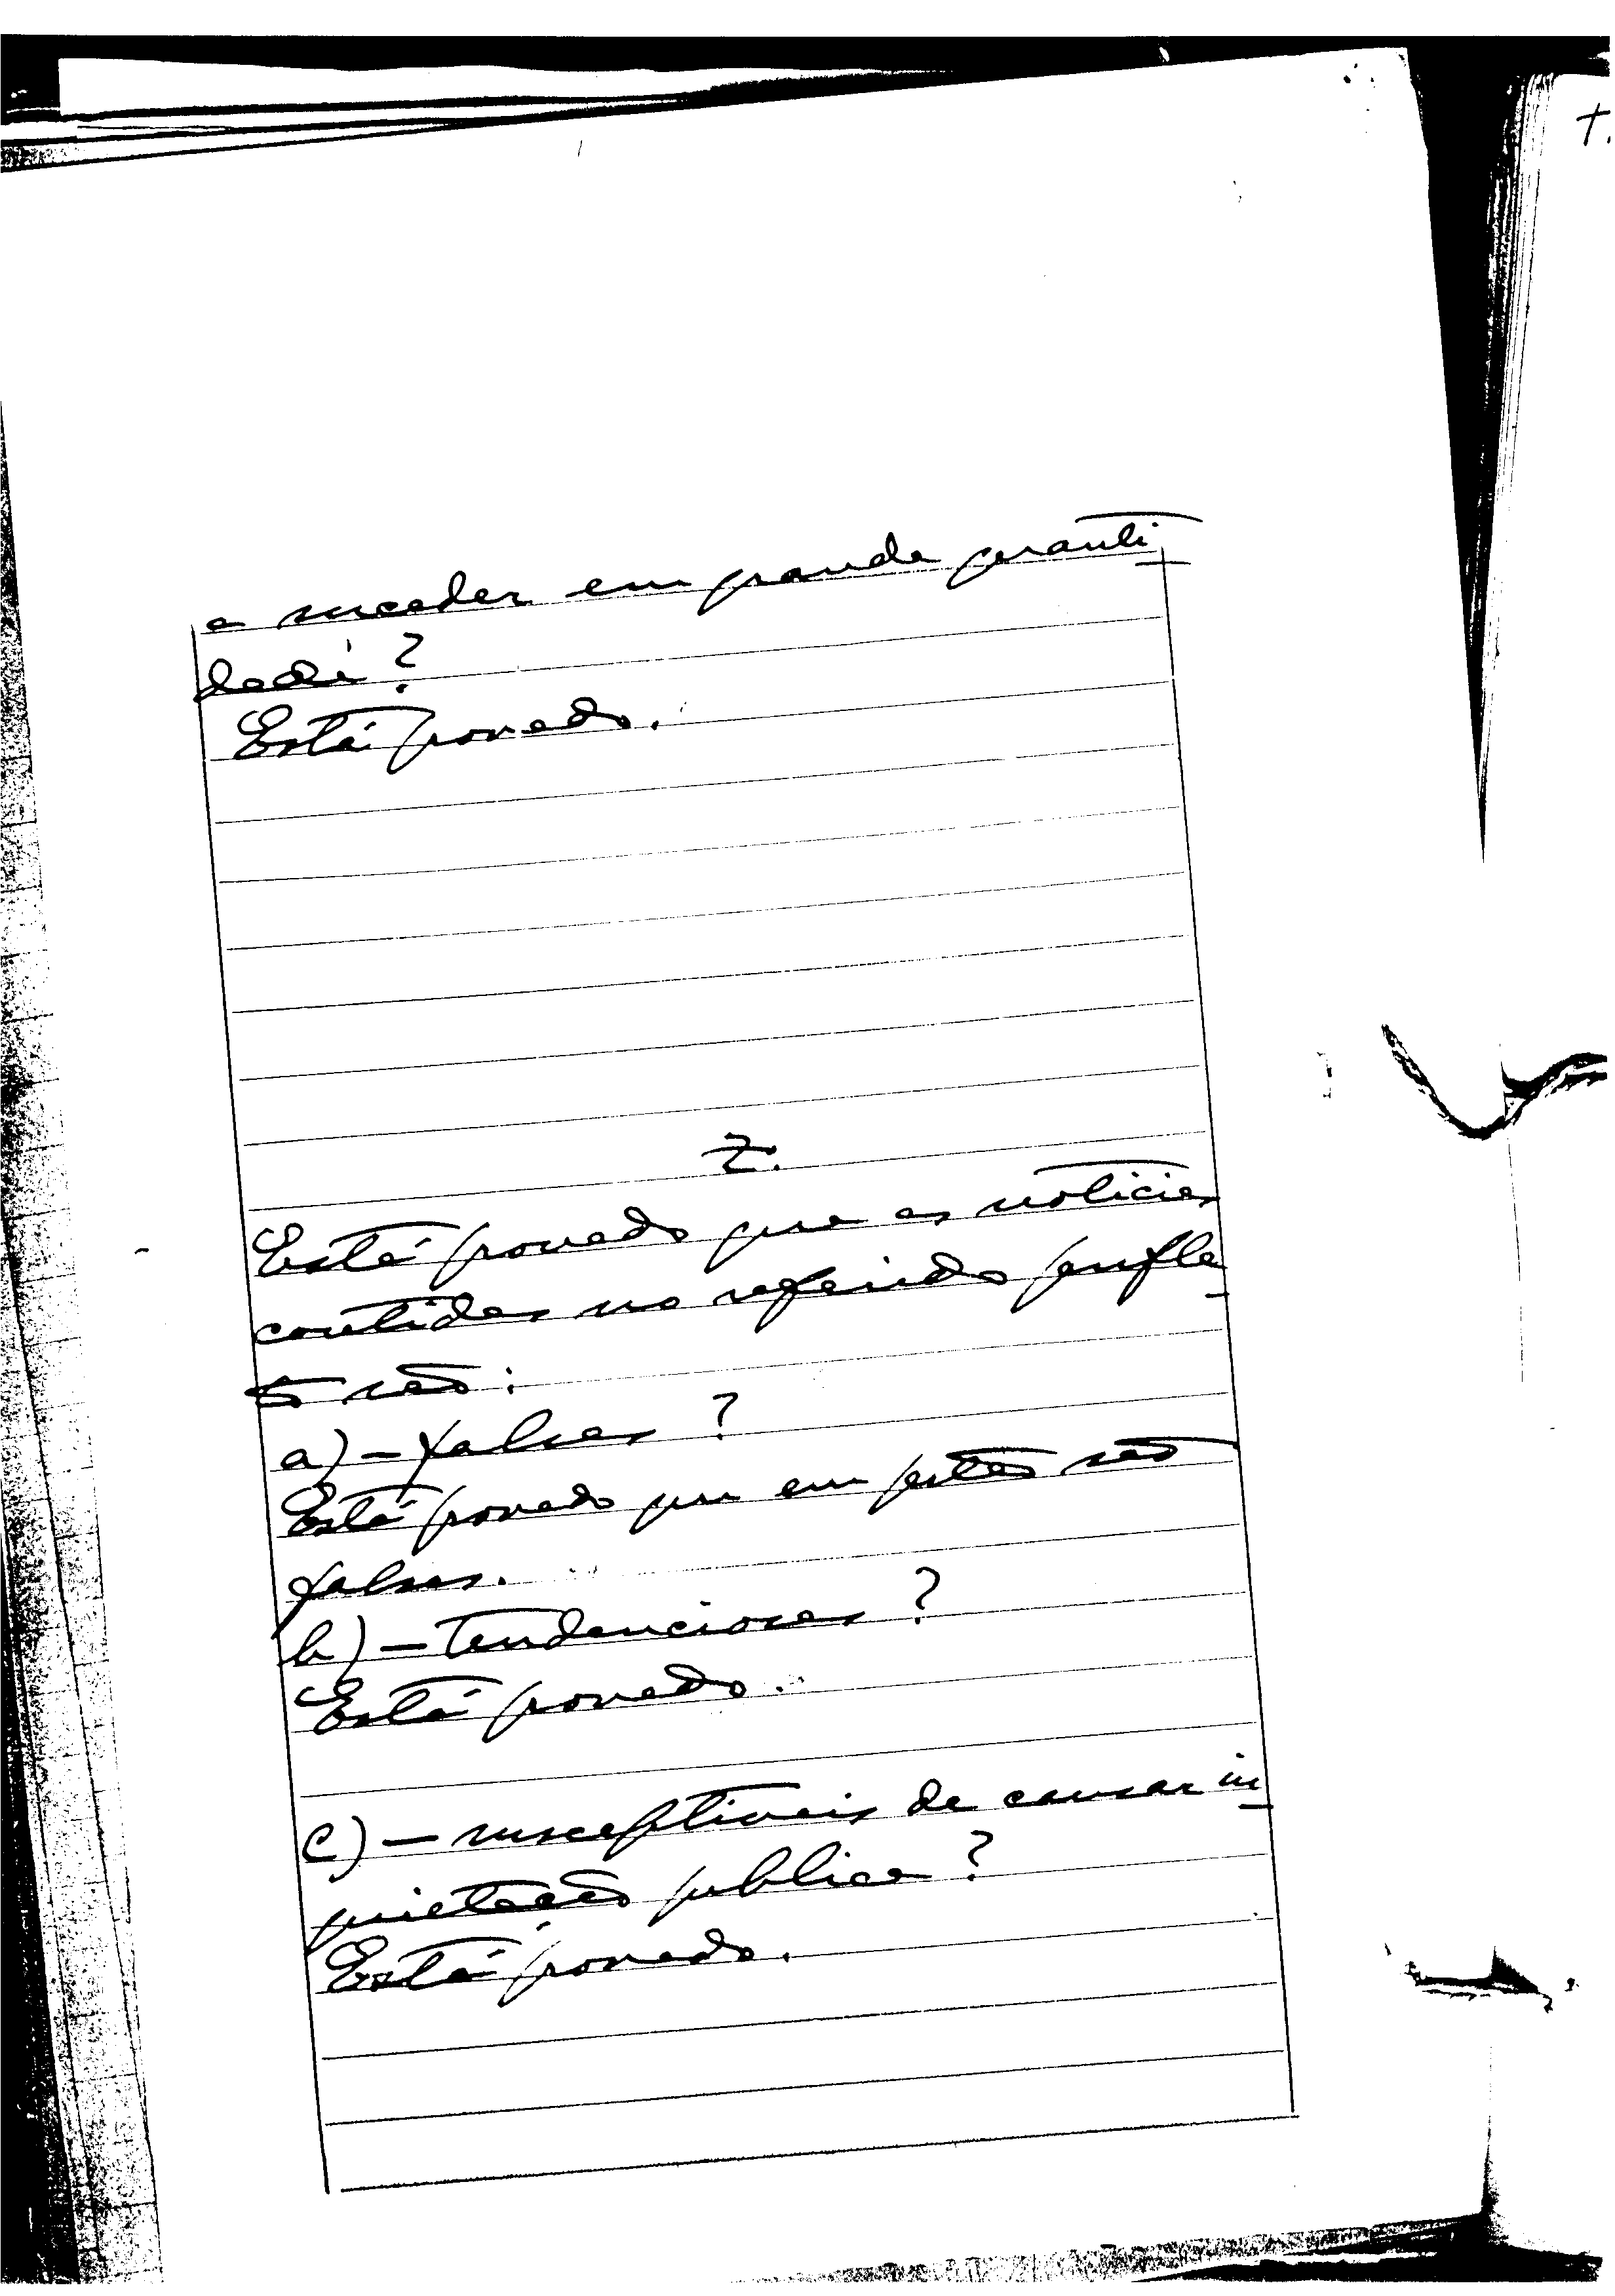 a suceder em grande quanti
dade?
Está provado.
2.
Está provado que as noticias
contidas no referido panfle
to são:
a) - falsas?
Está provado que em parte são
falsas.
b) - Tendenciosas?
Está provado.
c) - susceptiveis de causar in
quietação publica?
Está provado.